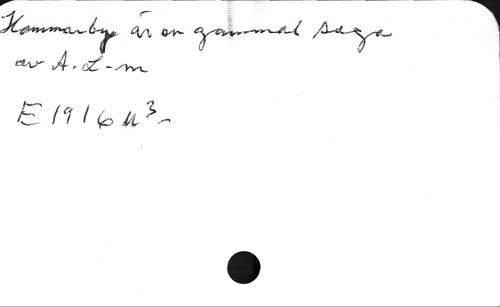 Hammarby är en gammal saga
av A. L-m
E 1916 u³-